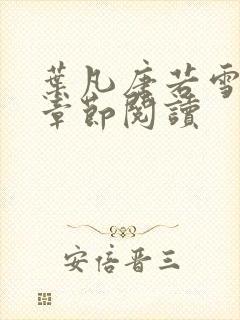 葉凡唐若雪
章節閱讀
安倍晉三